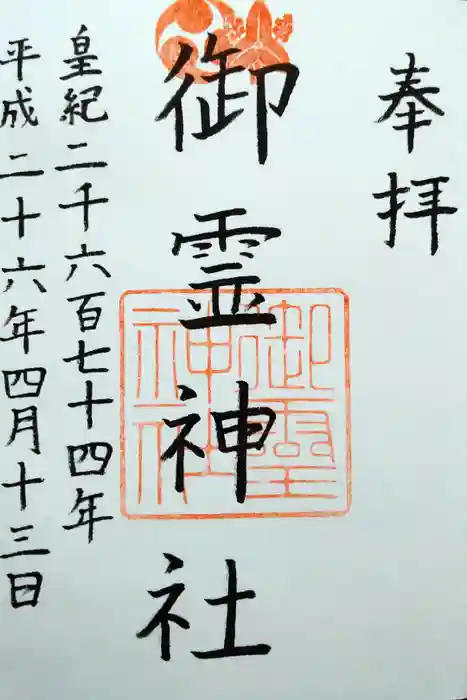 奉拝
御霊神社
御靈神社
皇紀二千六百七十四年
平成二十六年四月十三日